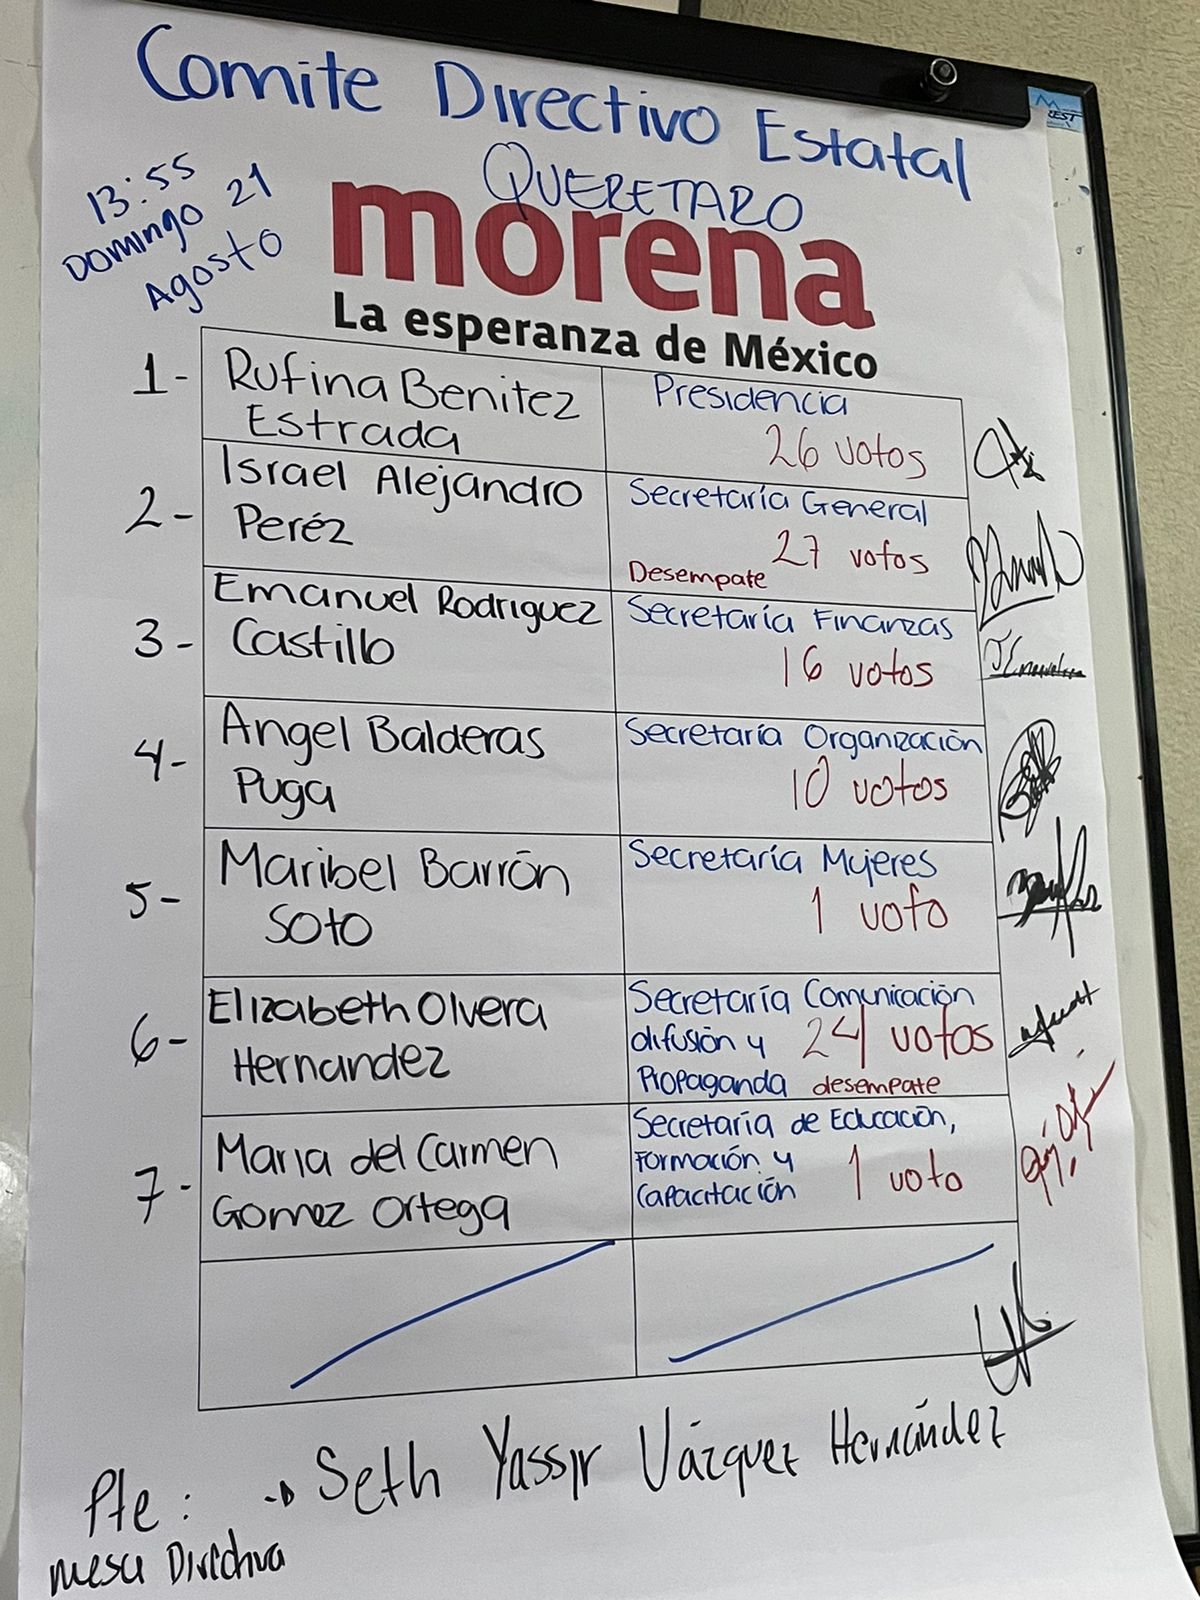 Comite Directivo Estatal
QUERETARO
13:55
Domingo 21
Agosto
morena
La esperanza de México
1- Rufina Benitez
Estrada
Presidencia
26 votos
2- Israel Alejandro
Peréz
Secretaría General
27 votos
Desempate
3- Emanuel Rodriguez
Castillo
Secretaría Finanzas
16 votos
4- Angel Balderas
Puga
Secretaría Organización
10 votos
5- Maribel Barrón
Soto
Secretaría Mujeres
1 voto
6- Elizabeth Olvera
Hernandez
Secretaría Comunicación
difusión y 24 votos
Propaganda desempate
7- Maria del Carmen
Gomez Ortega
Secretaría de Educación,
Formación y 1 voto
Capacitación
Pte: → Seth Yassir Vázquez Hernández
mesa Directiva